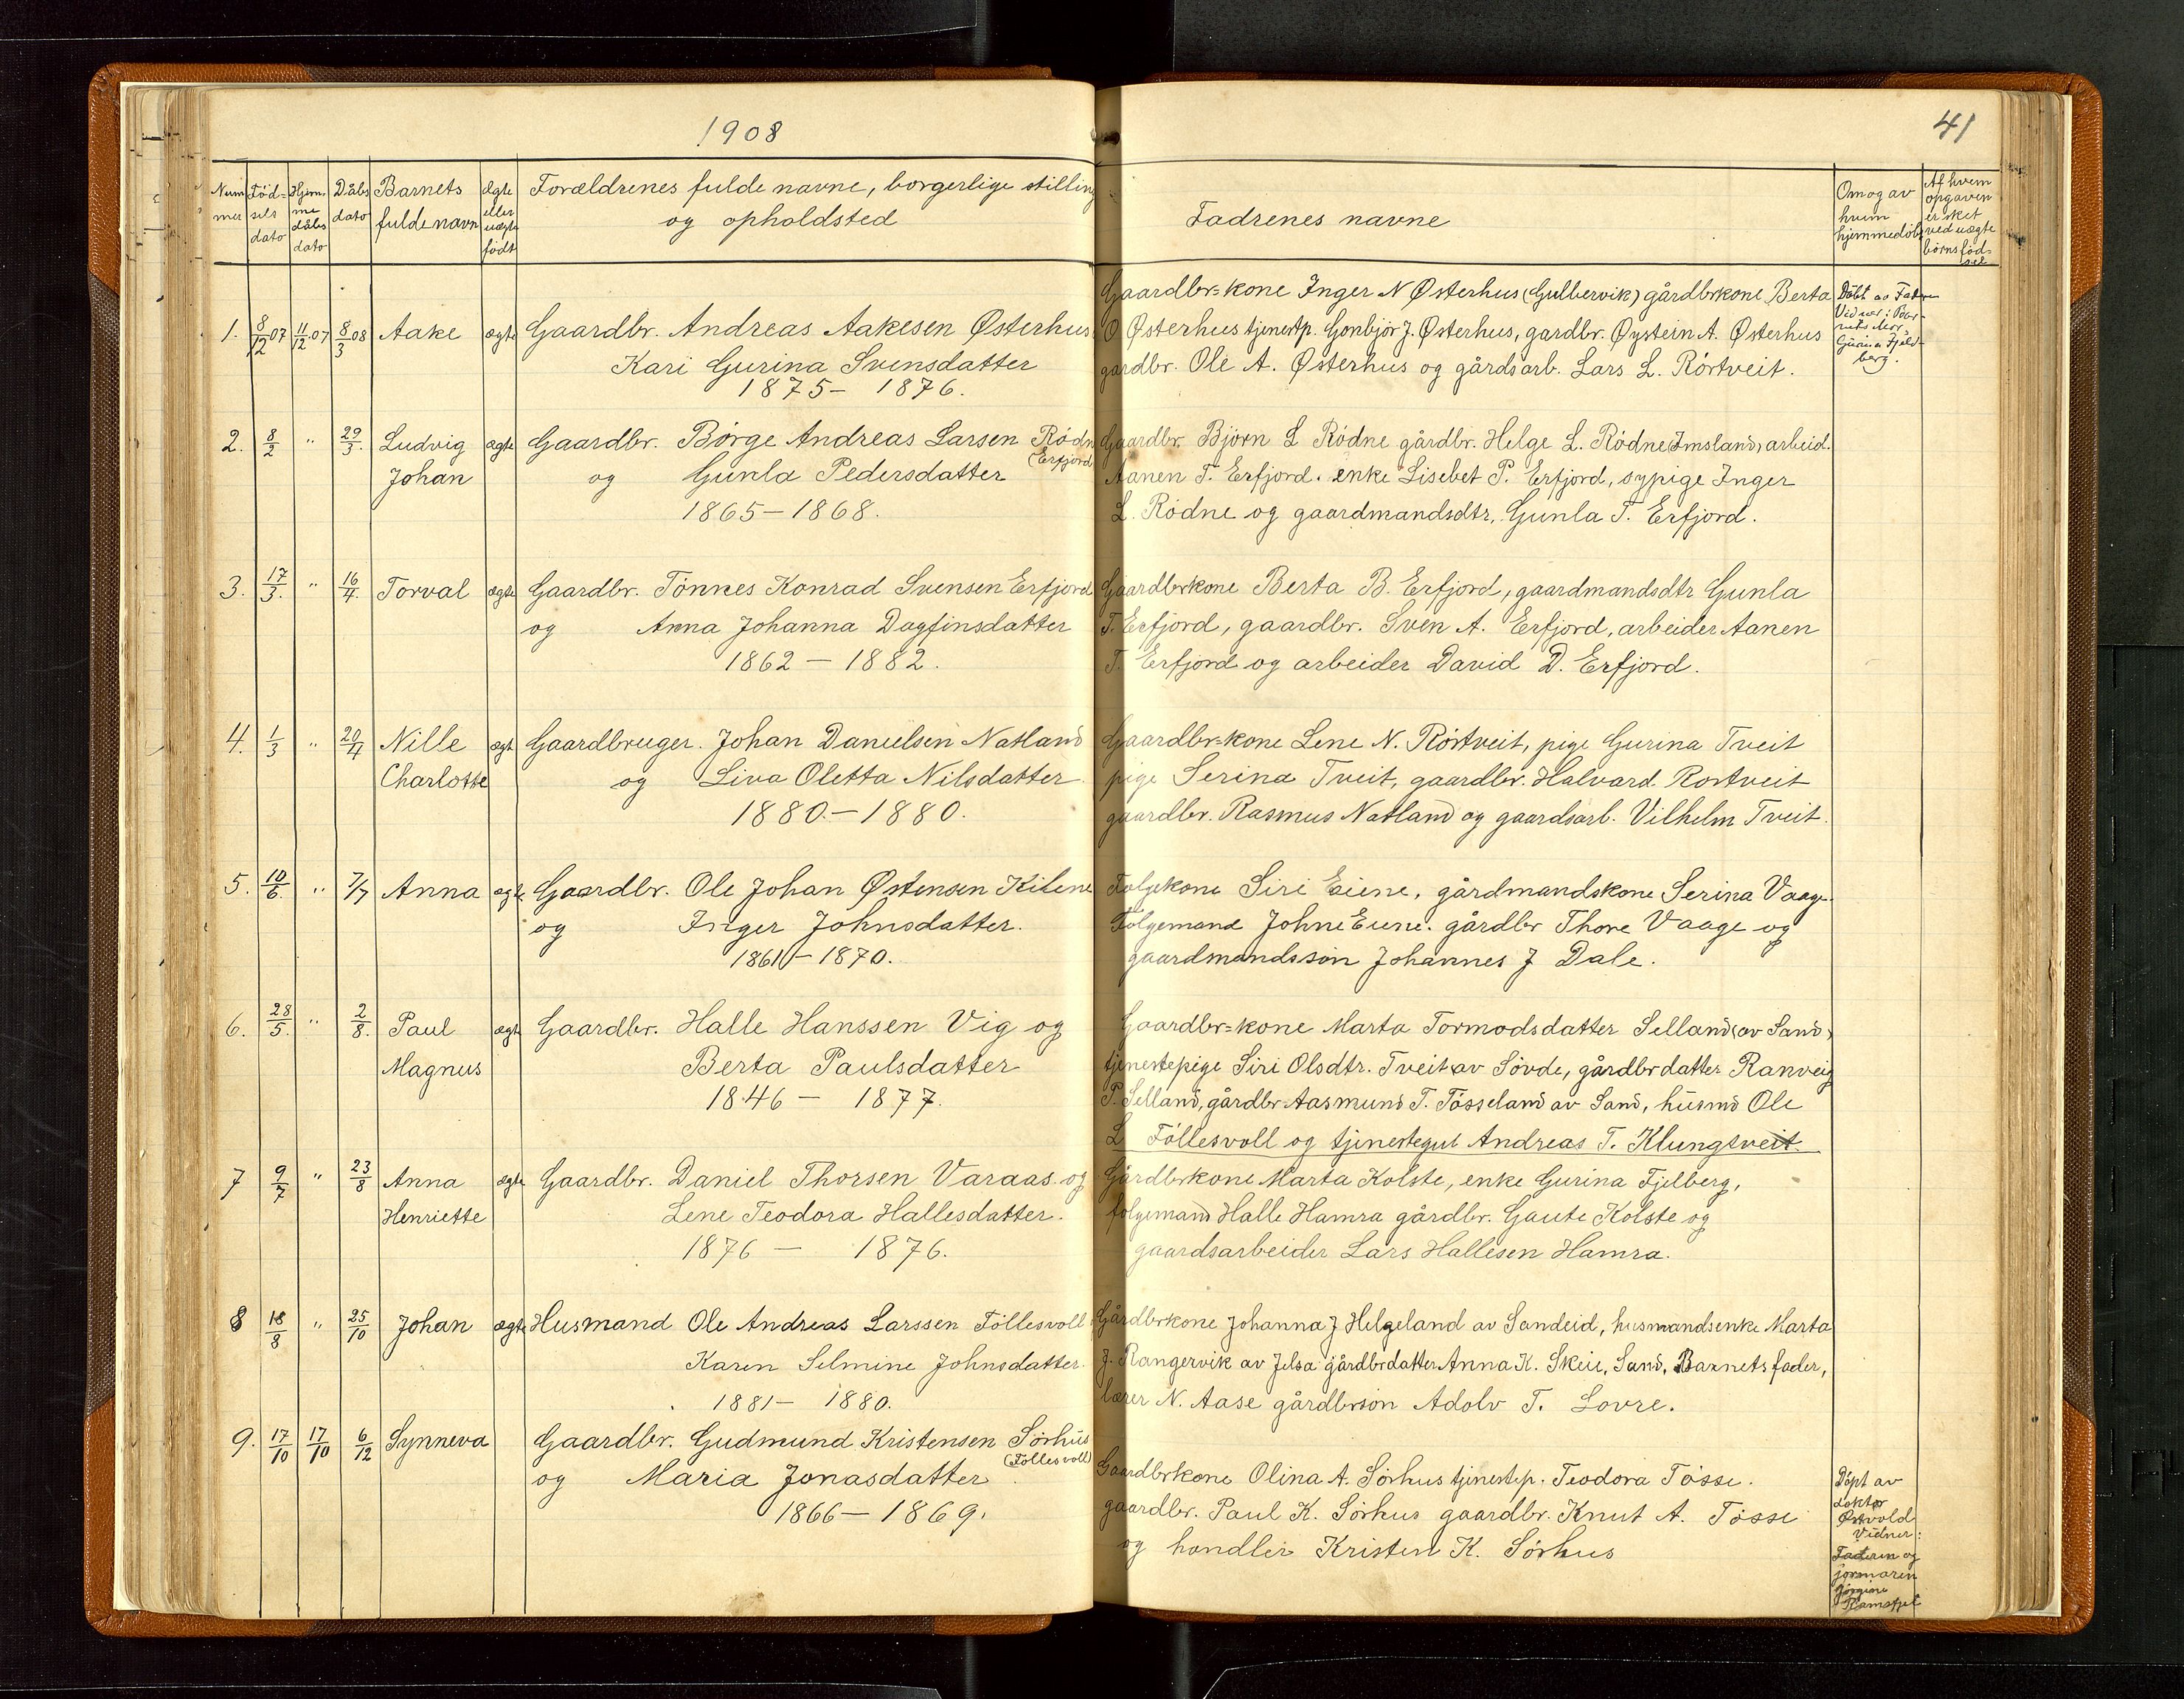 1908
41
Num mer
Fød- sels dato
Hjem me dåbs dato
Dåbs dato
Barnets fulde navn
Ægte eller uægte født
Forældrenes fulde navne, borgerlige stilling
og opholdsted
Fadrenes navne
Om og av hvem hjemmedøbt
Af hvem opgaven er sket ved uægte børns fød- sel
Gaardbr=kone Inger N Østerhus (Gulbervik) gårdbrkone Berta
1. 8/12 07 11/12 07 8/3 08 Aake ægte Gaardbr. Andreas Aakesen Østerhus
O Østerhus tjenestp. Gonbjör J. Østerhus, gardbr. Øystein A. Østerhus
Kari Gurina Svensdatter
gardbr. Ole A. Østerhus og gårdsarb. Lars L. Rørtveit.
1875 - 1876.
Døbt av Faderen
Vidner: Bar-
nets Mor,
Gurina Fjeld-
berg.
2. 8/2 " 29/3. Ludvig ægte Gaardbr. Børge Andreas Larsen Rødn
(Erfjord)
Gaardbr. Bjørn L Rødne gårdbr. Helge L. Rødne Imsland, arbeid.
Johan og Gunla Pedersdatter
Aanen T. Erfjord. enke Lisebet P. Erfjord, sypige Inger
1865 - 1868.
L. Rødne og gaardmandsdtr. Gunla T. Erfjord.
3. 17/3. " 16/4. Torval ægte Gaardbr. Tønnes Konrad Svensen Erfjord
Gaardbrkone Berta B. Erfjord, gaardmandsdtr Gunla
og Anna Johanna Dagfinsdatter
T. Erfjord, gaardbr. Sven A. Erfjord, arbeider Aanen
1862 - 1882.
T. Erfjord og arbeider David D. Erfjord.
4. 1/3 " 20/4 Nille ægt. Gaardbruger. Johan Danielsen Natland
Gaardbr=kone Lene N. Rørtveit, pige Gurina Tveit
Charlotte og Liva Oletta Nilsdatter
pige Serina Tveit, gaardbr. Halvard. Rortveit
1880. - 1880.
gaardbr. Rasmus Natland og gaardsarb. Vilhelm Tveit.
5. 10/6. " 7/7 Anna ægte Gaardbr. Ole Johan Østensen Kilene
Følgekone Siri Eiene, gårdmandskone Serina Vaage.
og Inger Johnsdatter.
Følgemand Johne Eiene. gårdbr Thore Vaage og
1861 - 1870.
gaardmandssøn Johannes J Dale.
6. 28/5. " 2/8. Paul ægte Gaardbr. Halle Hanssen Vig og
Gaardbr=kone Marta Tormodsdatter Selland (av Sand)
Magnus Berta Paulsdatter
tjenestepige Siri Olsdtr. Tveit av Søvde, gårdbrdatter Ranveig
1846 - 1877.
P. Selland, gårdbr Aasmund T. Tøsseland av Sand, husmd Ole
L Føllesvoll og tjenestegut Andreas T. Klungtveit.
7 9/7 " 23/8 Anna ægte Gaardbr. Daniel Thorsen Varaas og
Gårdbrkone Marta Kolste, enke Gurina Fjelberg,
Henriette Lene Teodora Hallesdatter.
følgemand Halle Hamra gårdbr. Gaute Kolste og
1876 - 1876.
gaardsarbeider Lars Hallesen Hamra.
8 18/8 " 25/10 Johan ægte Husmand Ole Andreas Larssen Føllesvoll
Gårdbrkone Johanna J Helgeland av Sandeid, husmandsenke Marta
Karen Selmine Johnsdatter.
J. Rangervik av Jelsa gårdbrdatter Anna K. Skeie, Sand, Barnets fader,
1881 - 1880.
lærer N. Aase gårdbrsøn Adolv T. Lovre.
9. 17/10 17/10 6/12 Synneva Gaardbr. Gudmund Kristensen Sørhus
(Føllesvoll)
og Maria Jonasdatter
Gaardbrkone Olina A. Sørhus tjenestep. Teodora Tøsse.
1866 - 1869.
gaardbr. Paul K. Sørhus gaardbr. Knut A. Tøsse
og handler Kristen K. Sørhus
Døpt av
doktor
Østvold
Vidner:
Faderen og
jormoren
Jørgine
Ramsfjel